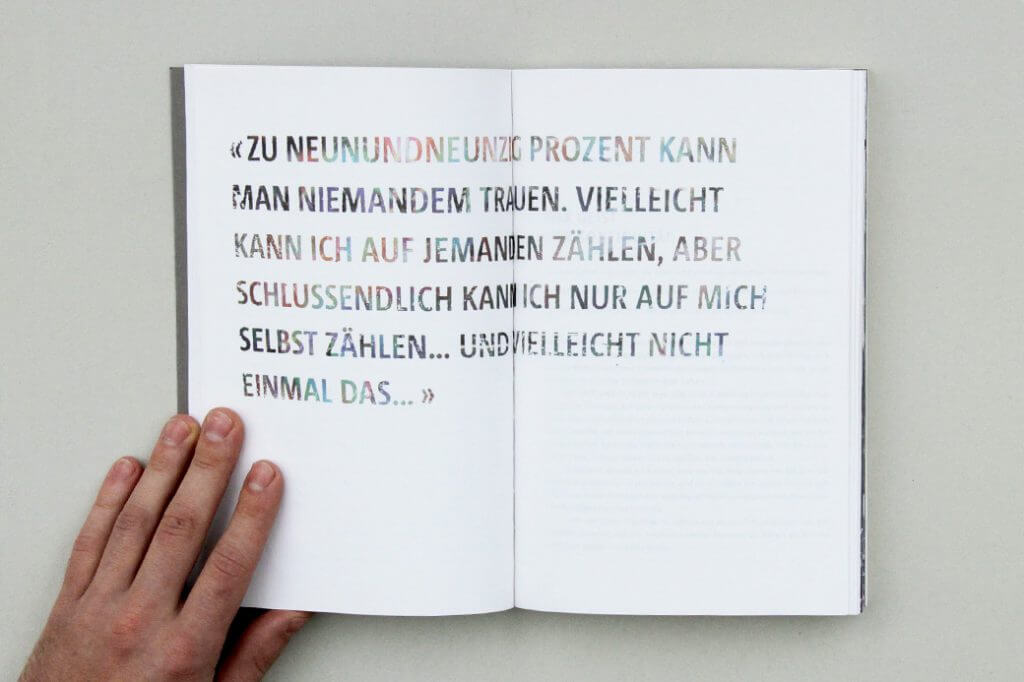 « ZU NEUNUNDNEUNZIG PROZENT KANN
MAN NIEMANDEM TRAUEN. VIELLEICHT
KANN ICH AUF JEMANDEN ZÄHLEN, ABER
SCHLUSSENDLICH KANN ICH NUR AUF MICH
SELBST ZÄHLEN... UND VIELLEICHT NICHT
EINMAL DAS... »